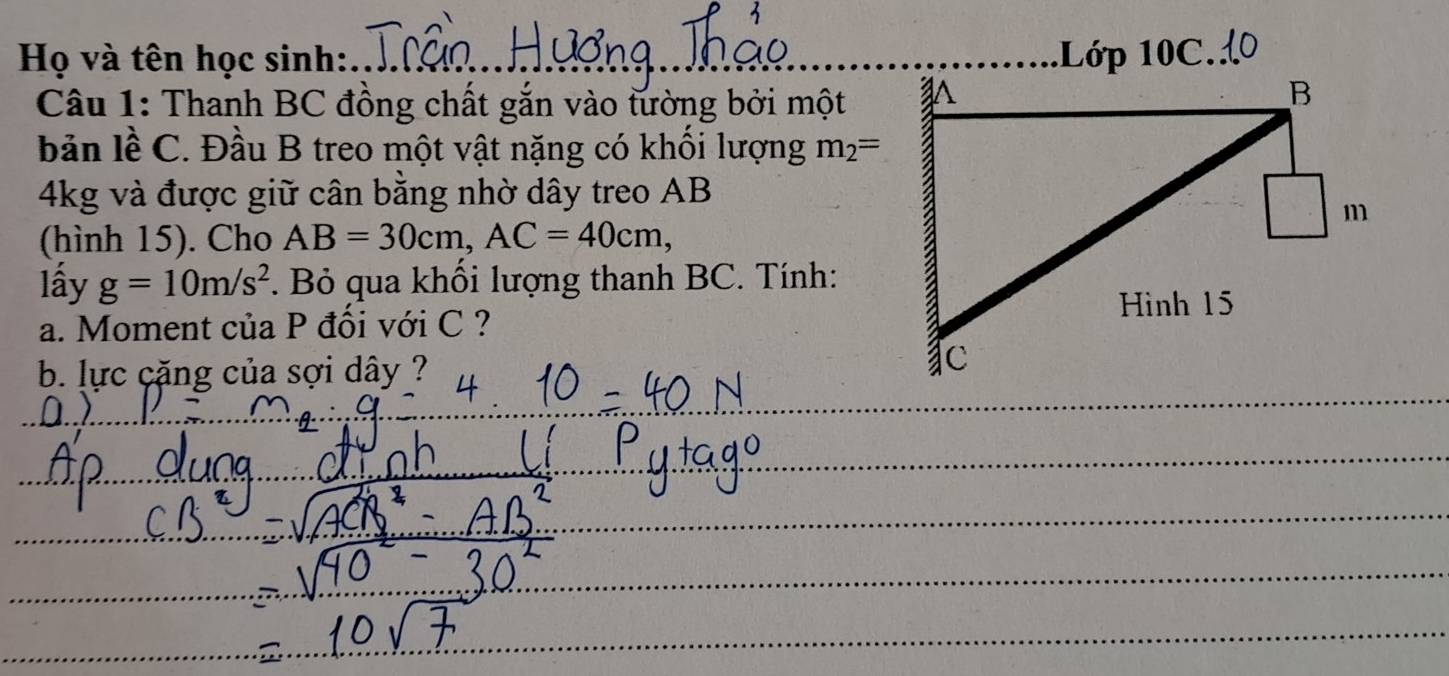 Họ và tên học sinh:..Trần Hương Thảo..........Lớp 10C..10
Câu 1: Thanh BC đồng chất gắn vào tường bởi một
bản lề C. Đầu B treo một vật nặng có khối lượng m₂=
4kg và được giữ cân bằng nhờ dây treo AB
(hình 15). Cho AB = 30cm, AC = 40cm,
lấy g = 10m/s². Bỏ qua khối lượng thanh BC. Tính:
a. Moment của P đối với C ?
b. lực căng của sợi dây ?
A
B
m
Hình 15
C
a) P = m₂ . g = 4 . 10 = 40 N
Áp dụng định lí Pytago
CB² = √AC² - AB²
= √40² - 30²
= 10√7